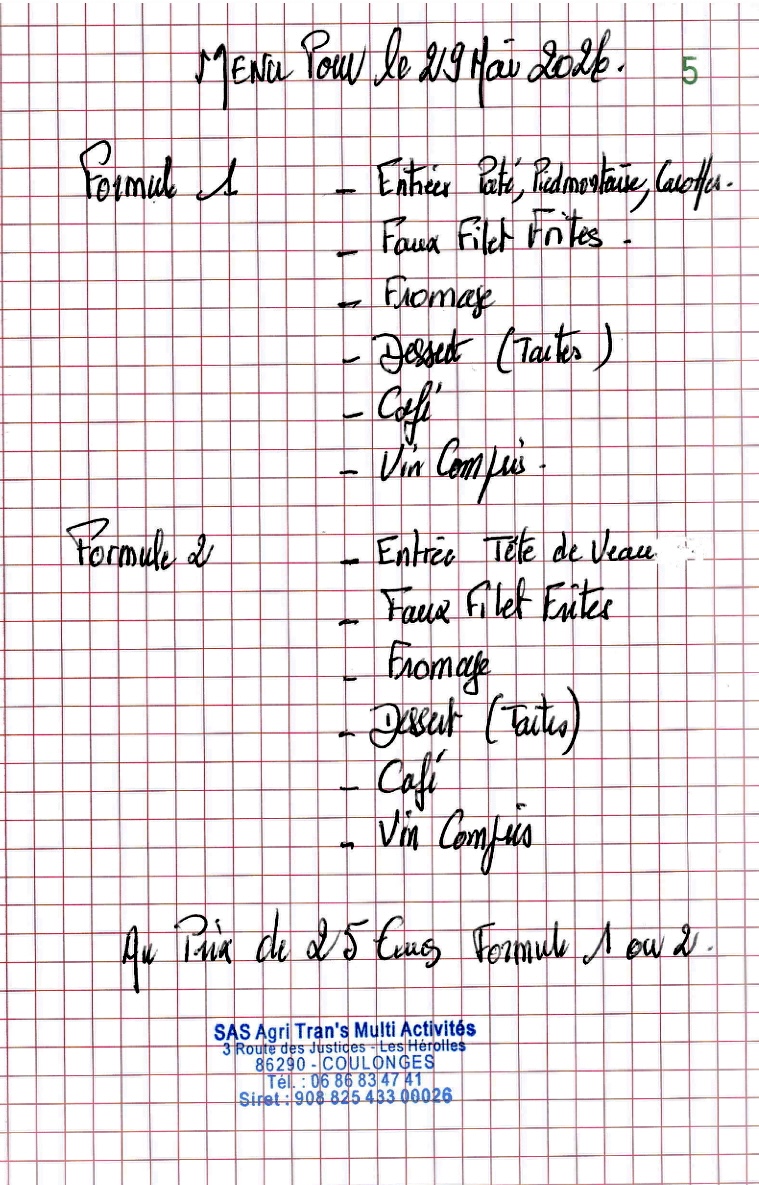 MENU Pour le 29 Mai 2026. 5
Formule 1 - Entrées Paté, Piedmontaise, Carottes.
- Faux Filet Frites.
- Fromage
- Dessert (Tartes)
- Café
- Vin Compris.
Formule 2 - Entrée Tête de Veau
- Faux Filet Frites
- Fromage
- Dessert (Tartes)
- Café
- Vin Compris
Au Prix de 25 Euros Formule 1 ou 2.
SAS Agri Tran's Multi Activités
3 Route des Justices - Les Hérolles
86290 - COULONGES
Tél. : 06 86 83 47 41
Siret : 908 825 433 00026